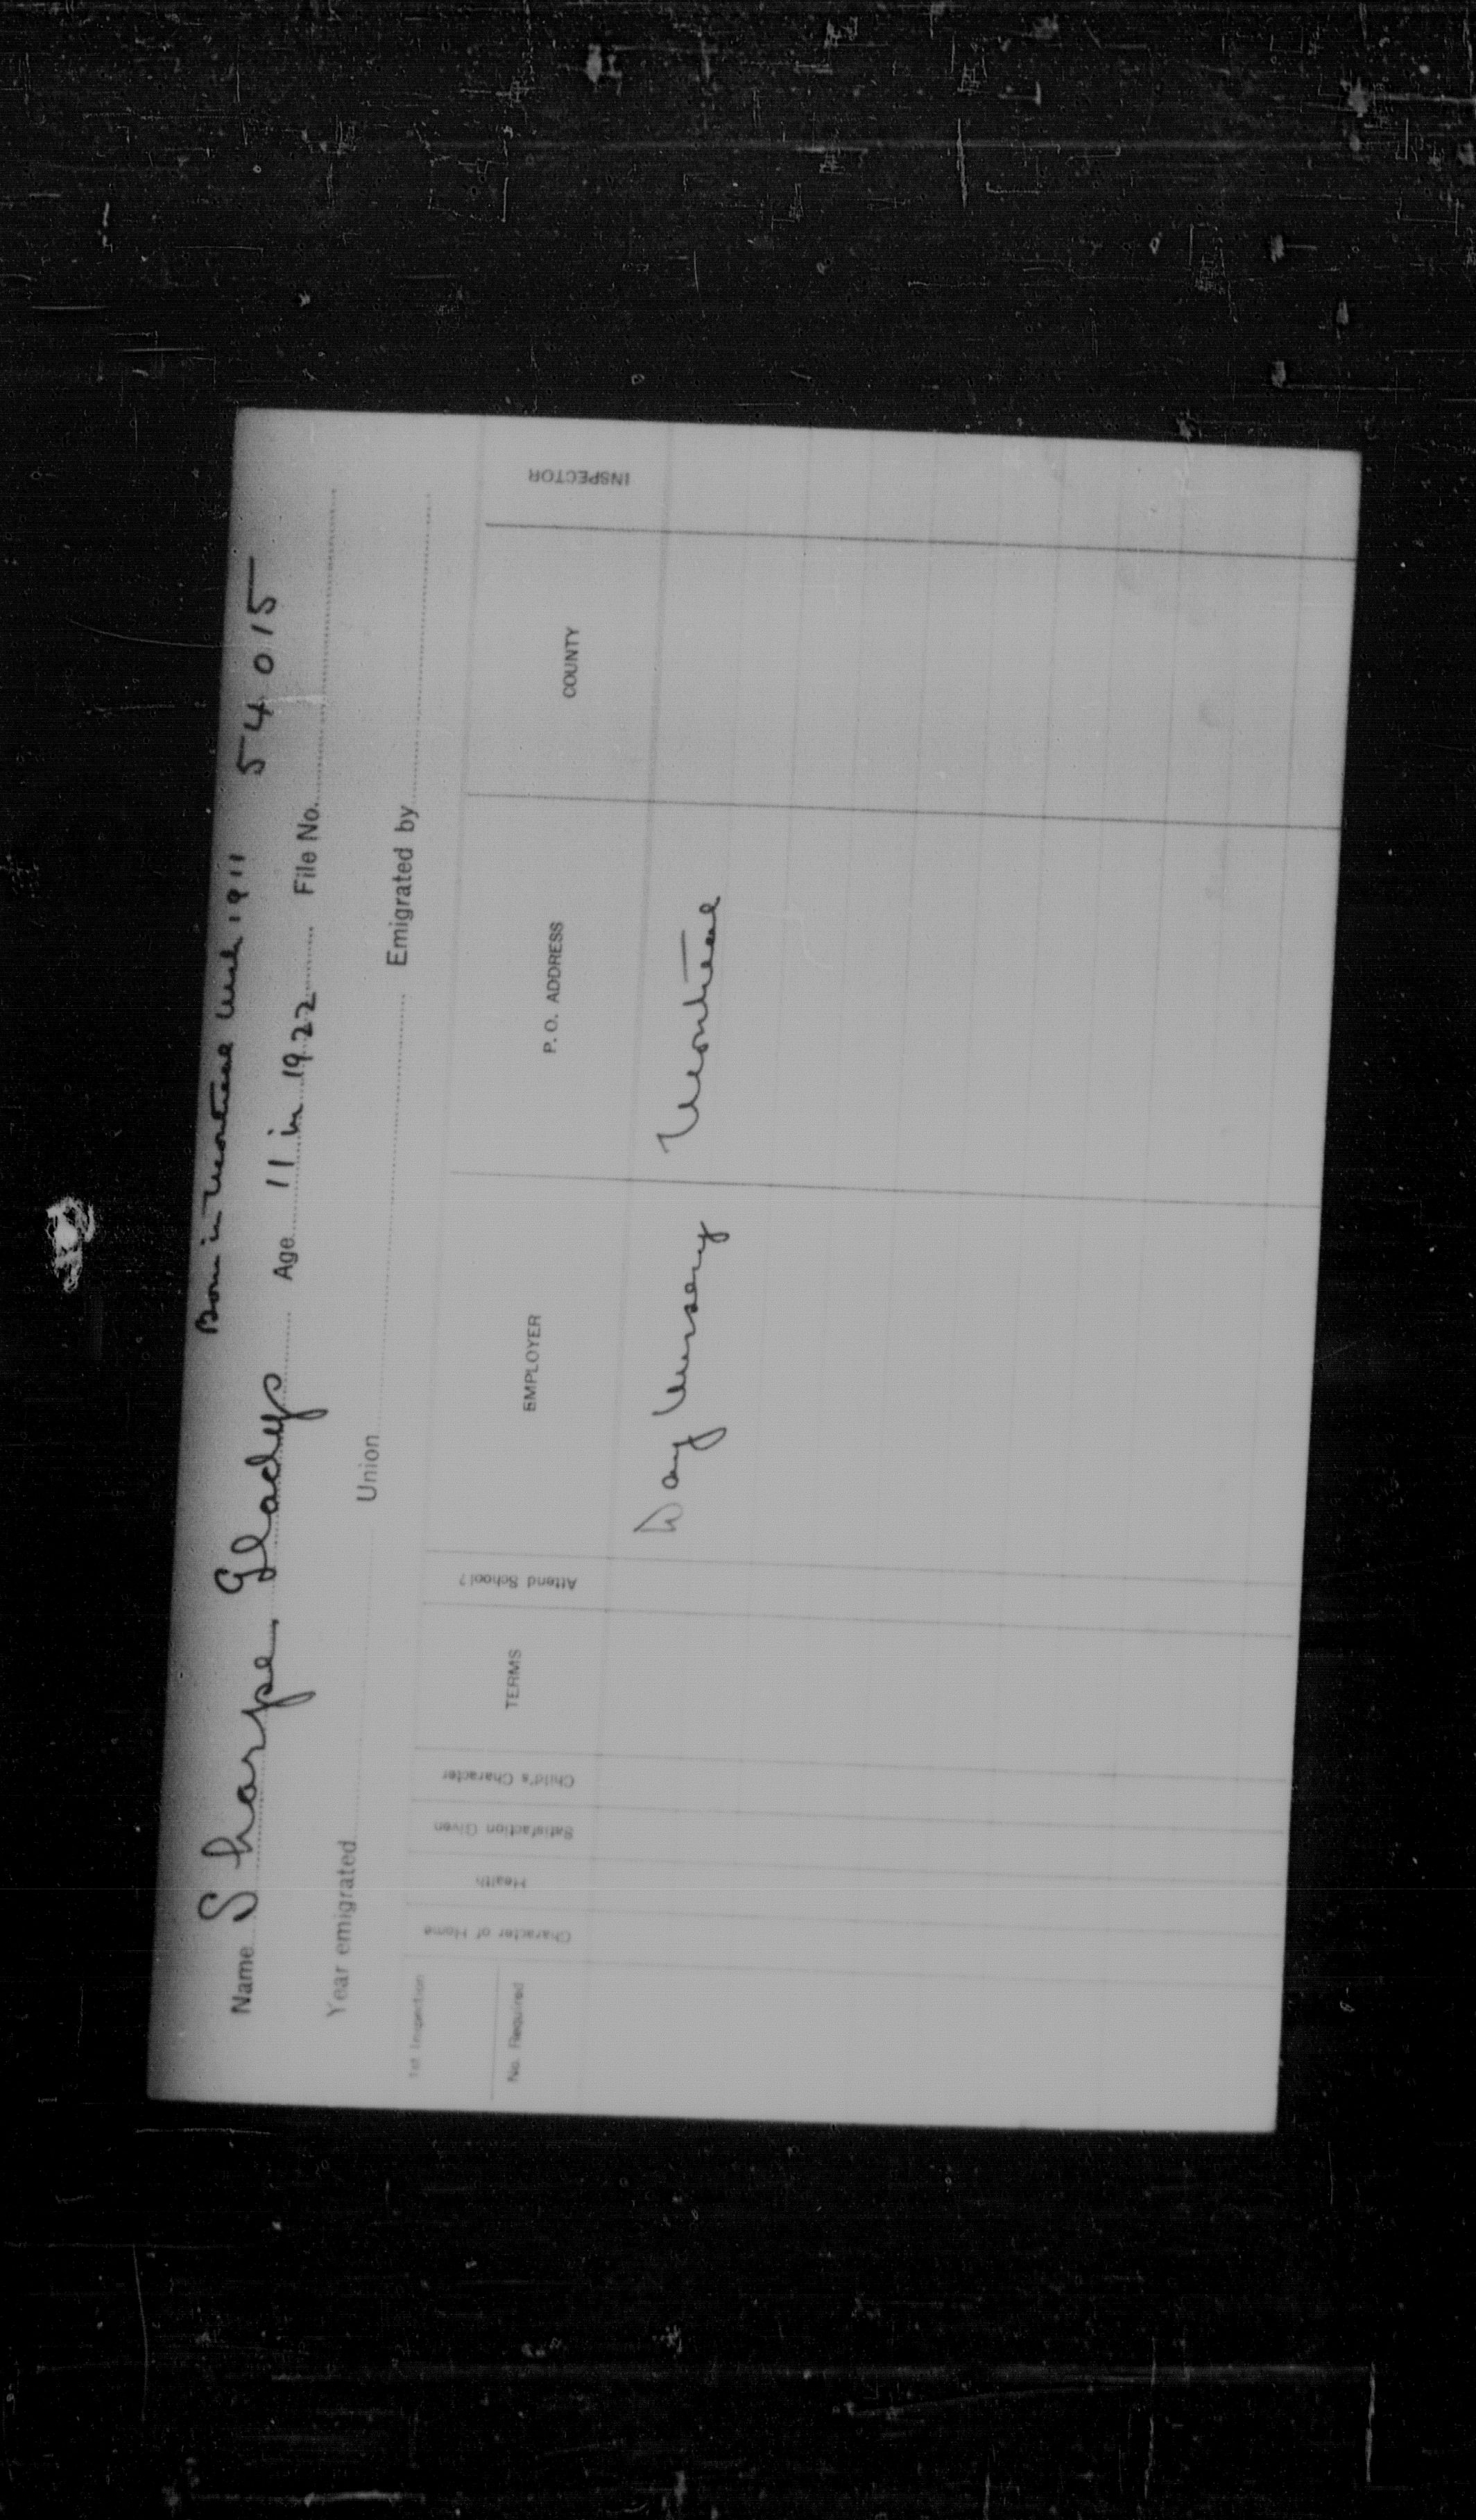 Born in Montreal Mch 1911 54015
Name Sharpe, Gladys Age 11 in 1922 File No.
Year emigrated Union Emigrated by
1st Inspection
No. Required
Character of Home
Health
Satisfaction Given
Child's Character
TERMS
Attend School?
EMPLOYER
P. O. ADDRESS
COUNTY
INSPECTOR
Day Nursery Montreal